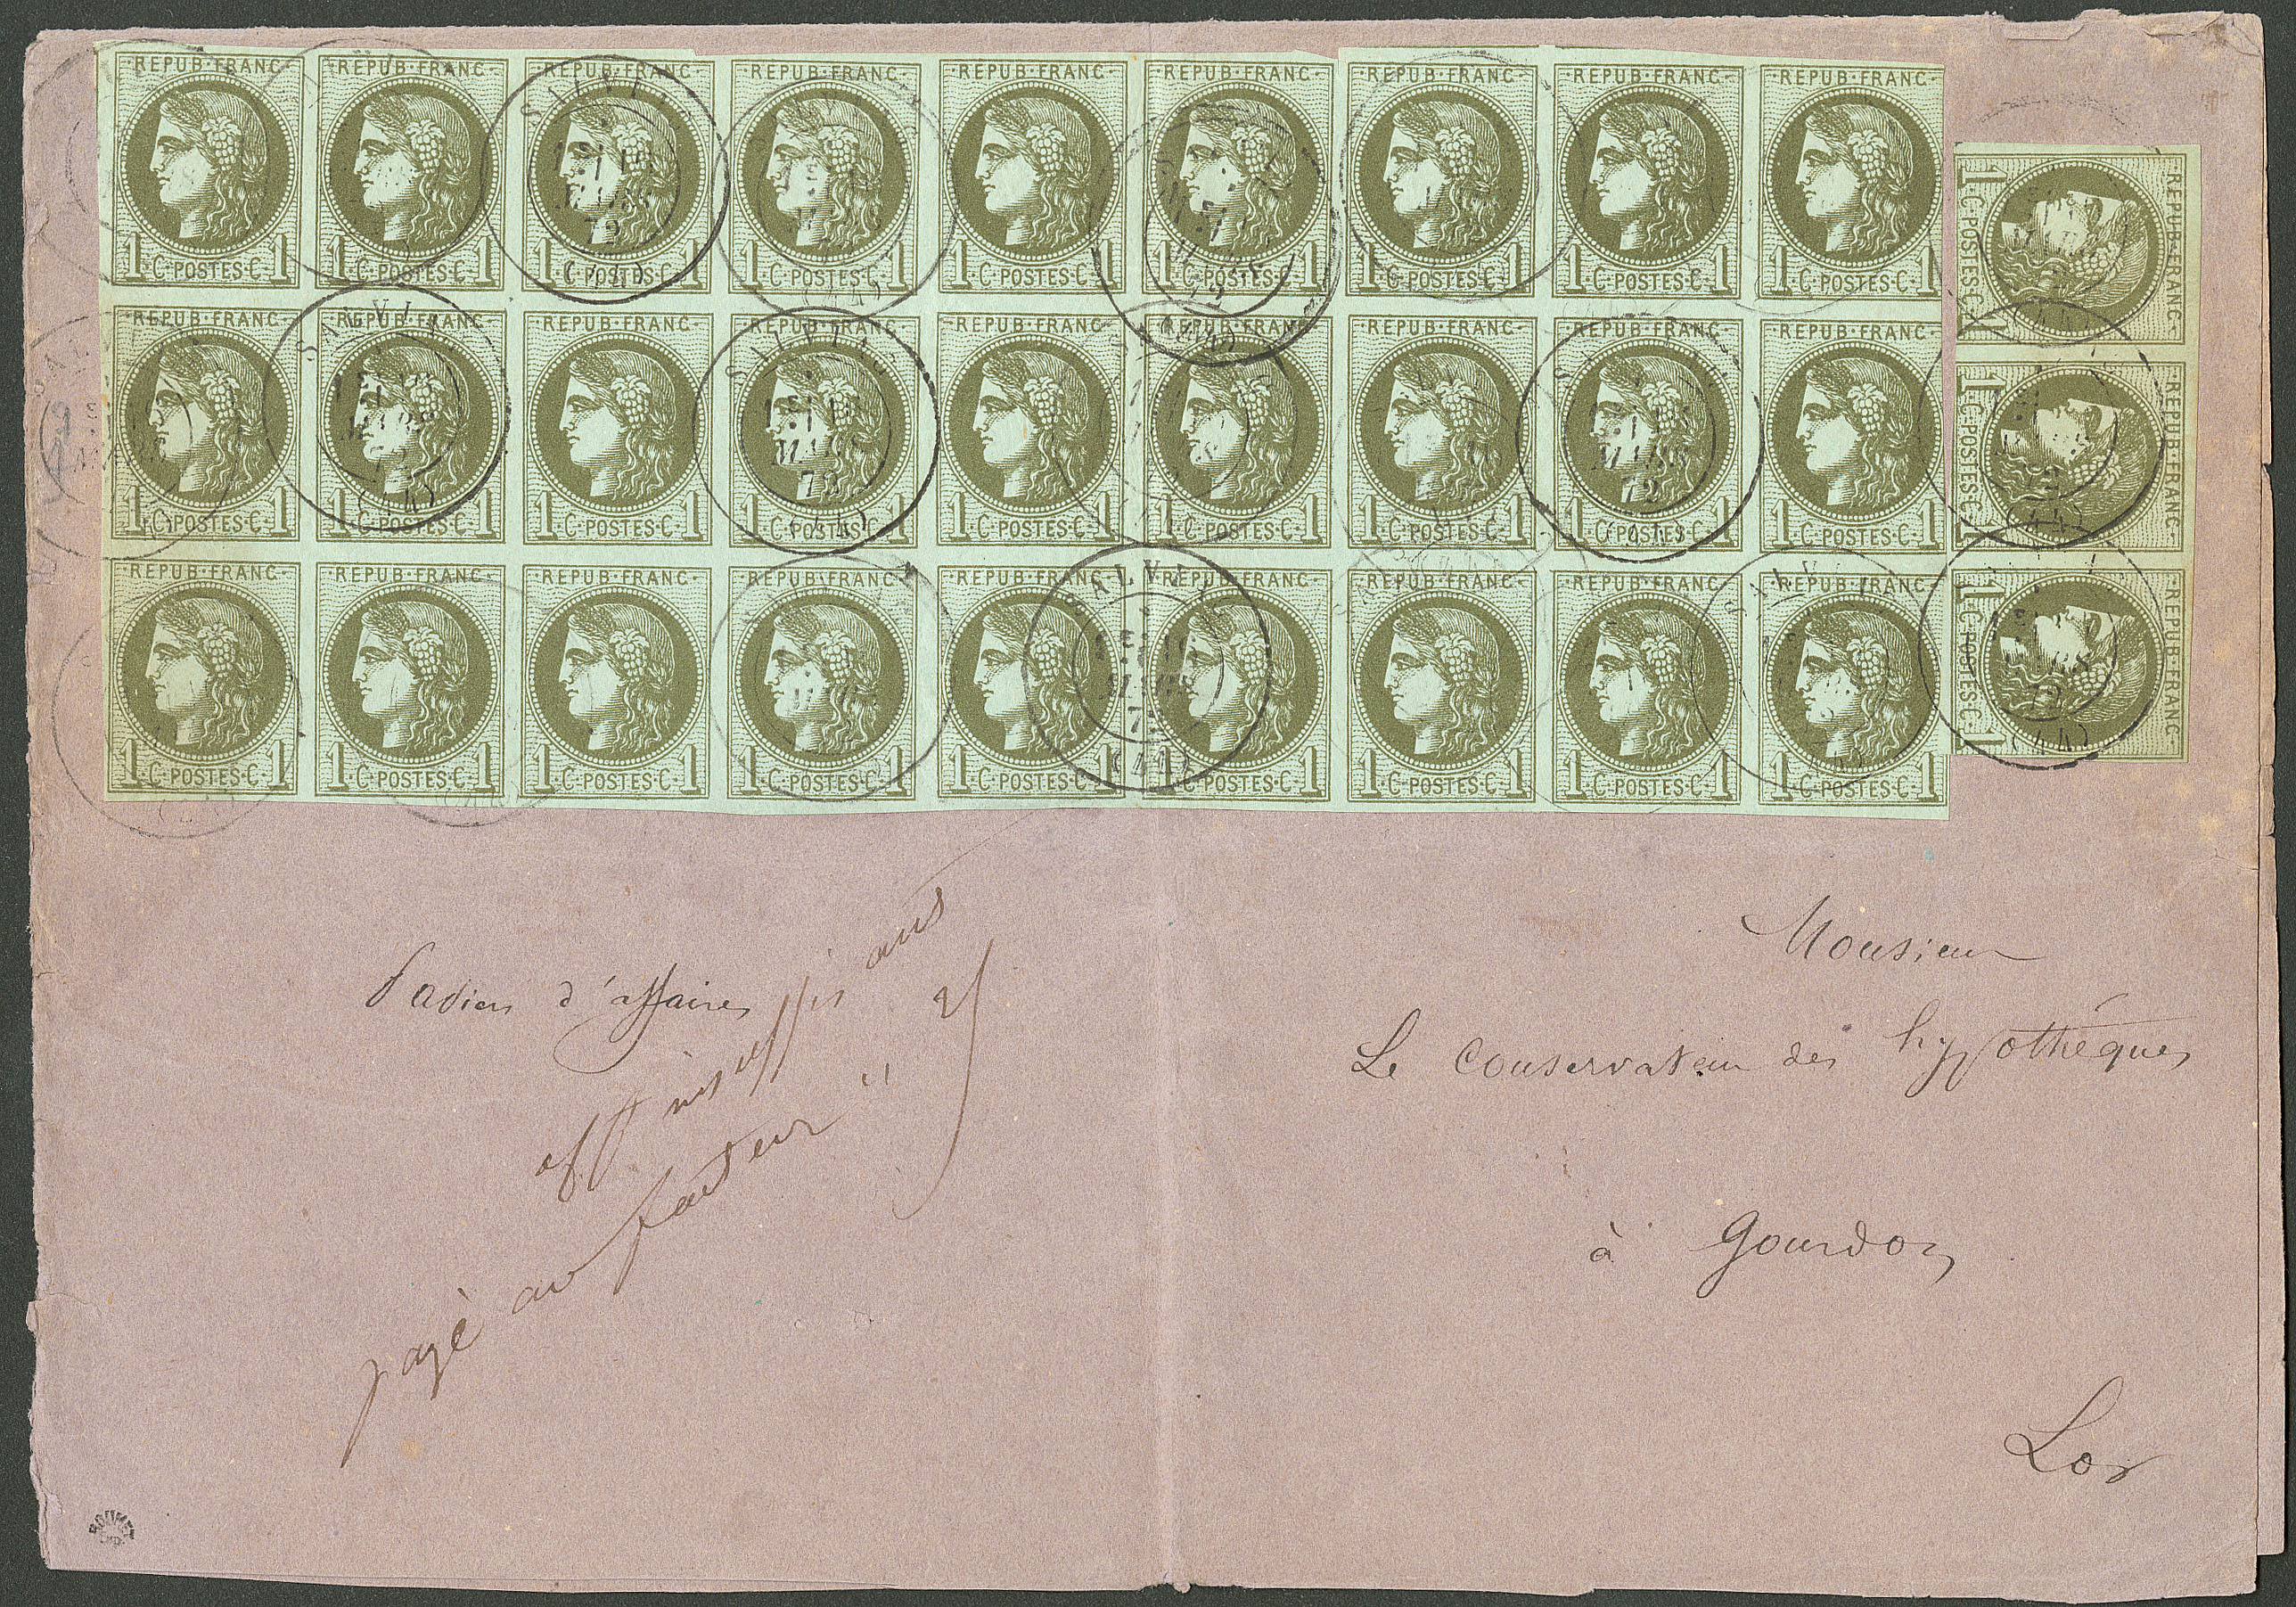 REPUB·FRANC· REPUB·FRANC· REPUB·FRANC· REPUB·FRANC· REPUB·FRANC· REPUB·FRANC· REPUB·FRANC· REPUB·FRANC· REPUB·FRANC·
1·C·POSTES·C·1 1·C·POSTES·C·1 1·C·POSTES·C·1 1·C·POSTES·C·1 1·C·POSTES·C·1 1·C·POSTES·C·1 1·C·POSTES·C·1 1·C·POSTES·C·1 1·C·POSTES·C·1
REPUB·FRANC· REPUB·FRANC· REPUB·FRANC· REPUB·FRANC· REPUB·FRANC· REPUB·FRANC· REPUB·FRANC· REPUB·FRANC· REPUB·FRANC·
1·C·POSTES·C·1 1·C·POSTES·C·1 1·C·POSTES·C·1 1·C·POSTES·C·1 1·C·POSTES·C·1 1·C·POSTES·C·1 1·C·POSTES·C·1 1·C·POSTES·C·1 1·C·POSTES·C·1
REPUB·FRANC· REPUB·FRANC· REPUB·FRANC· REPUB·FRANC· REPUB·FRANC· REPUB·FRANC· REPUB·FRANC· REPUB·FRANC· REPUB·FRANC·
1·C·POSTES·C·1 1·C·POSTES·C·1 1·C·POSTES·C·1 1·C·POSTES·C·1 1·C·POSTES·C·1 1·C·POSTES·C·1 1·C·POSTES·C·1 1·C·POSTES·C·1 1·C·POSTES·C·1
REPUB·FRANC·
1·C·POSTES·C·1
REPUB·FRANC·
1·C·POSTES·C·1
REPUB·FRANC·
1·C·POSTES·C·1
SALVIAC
MARS
72
(44)
d'affaires
aff insuffisant
payé au facteur
Monsieur
Le Conservateur des hypothéques
à Gourdon
Lot
ROUMET